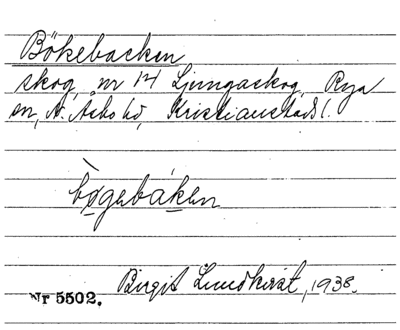 Bökebacken
skog, nr 14 Ljungaskog, Rya
sn, N. Åsbo hd, Kristianstads l.
bøgebaken
Birgit Lundkvist, 1938.
Nr 5502.